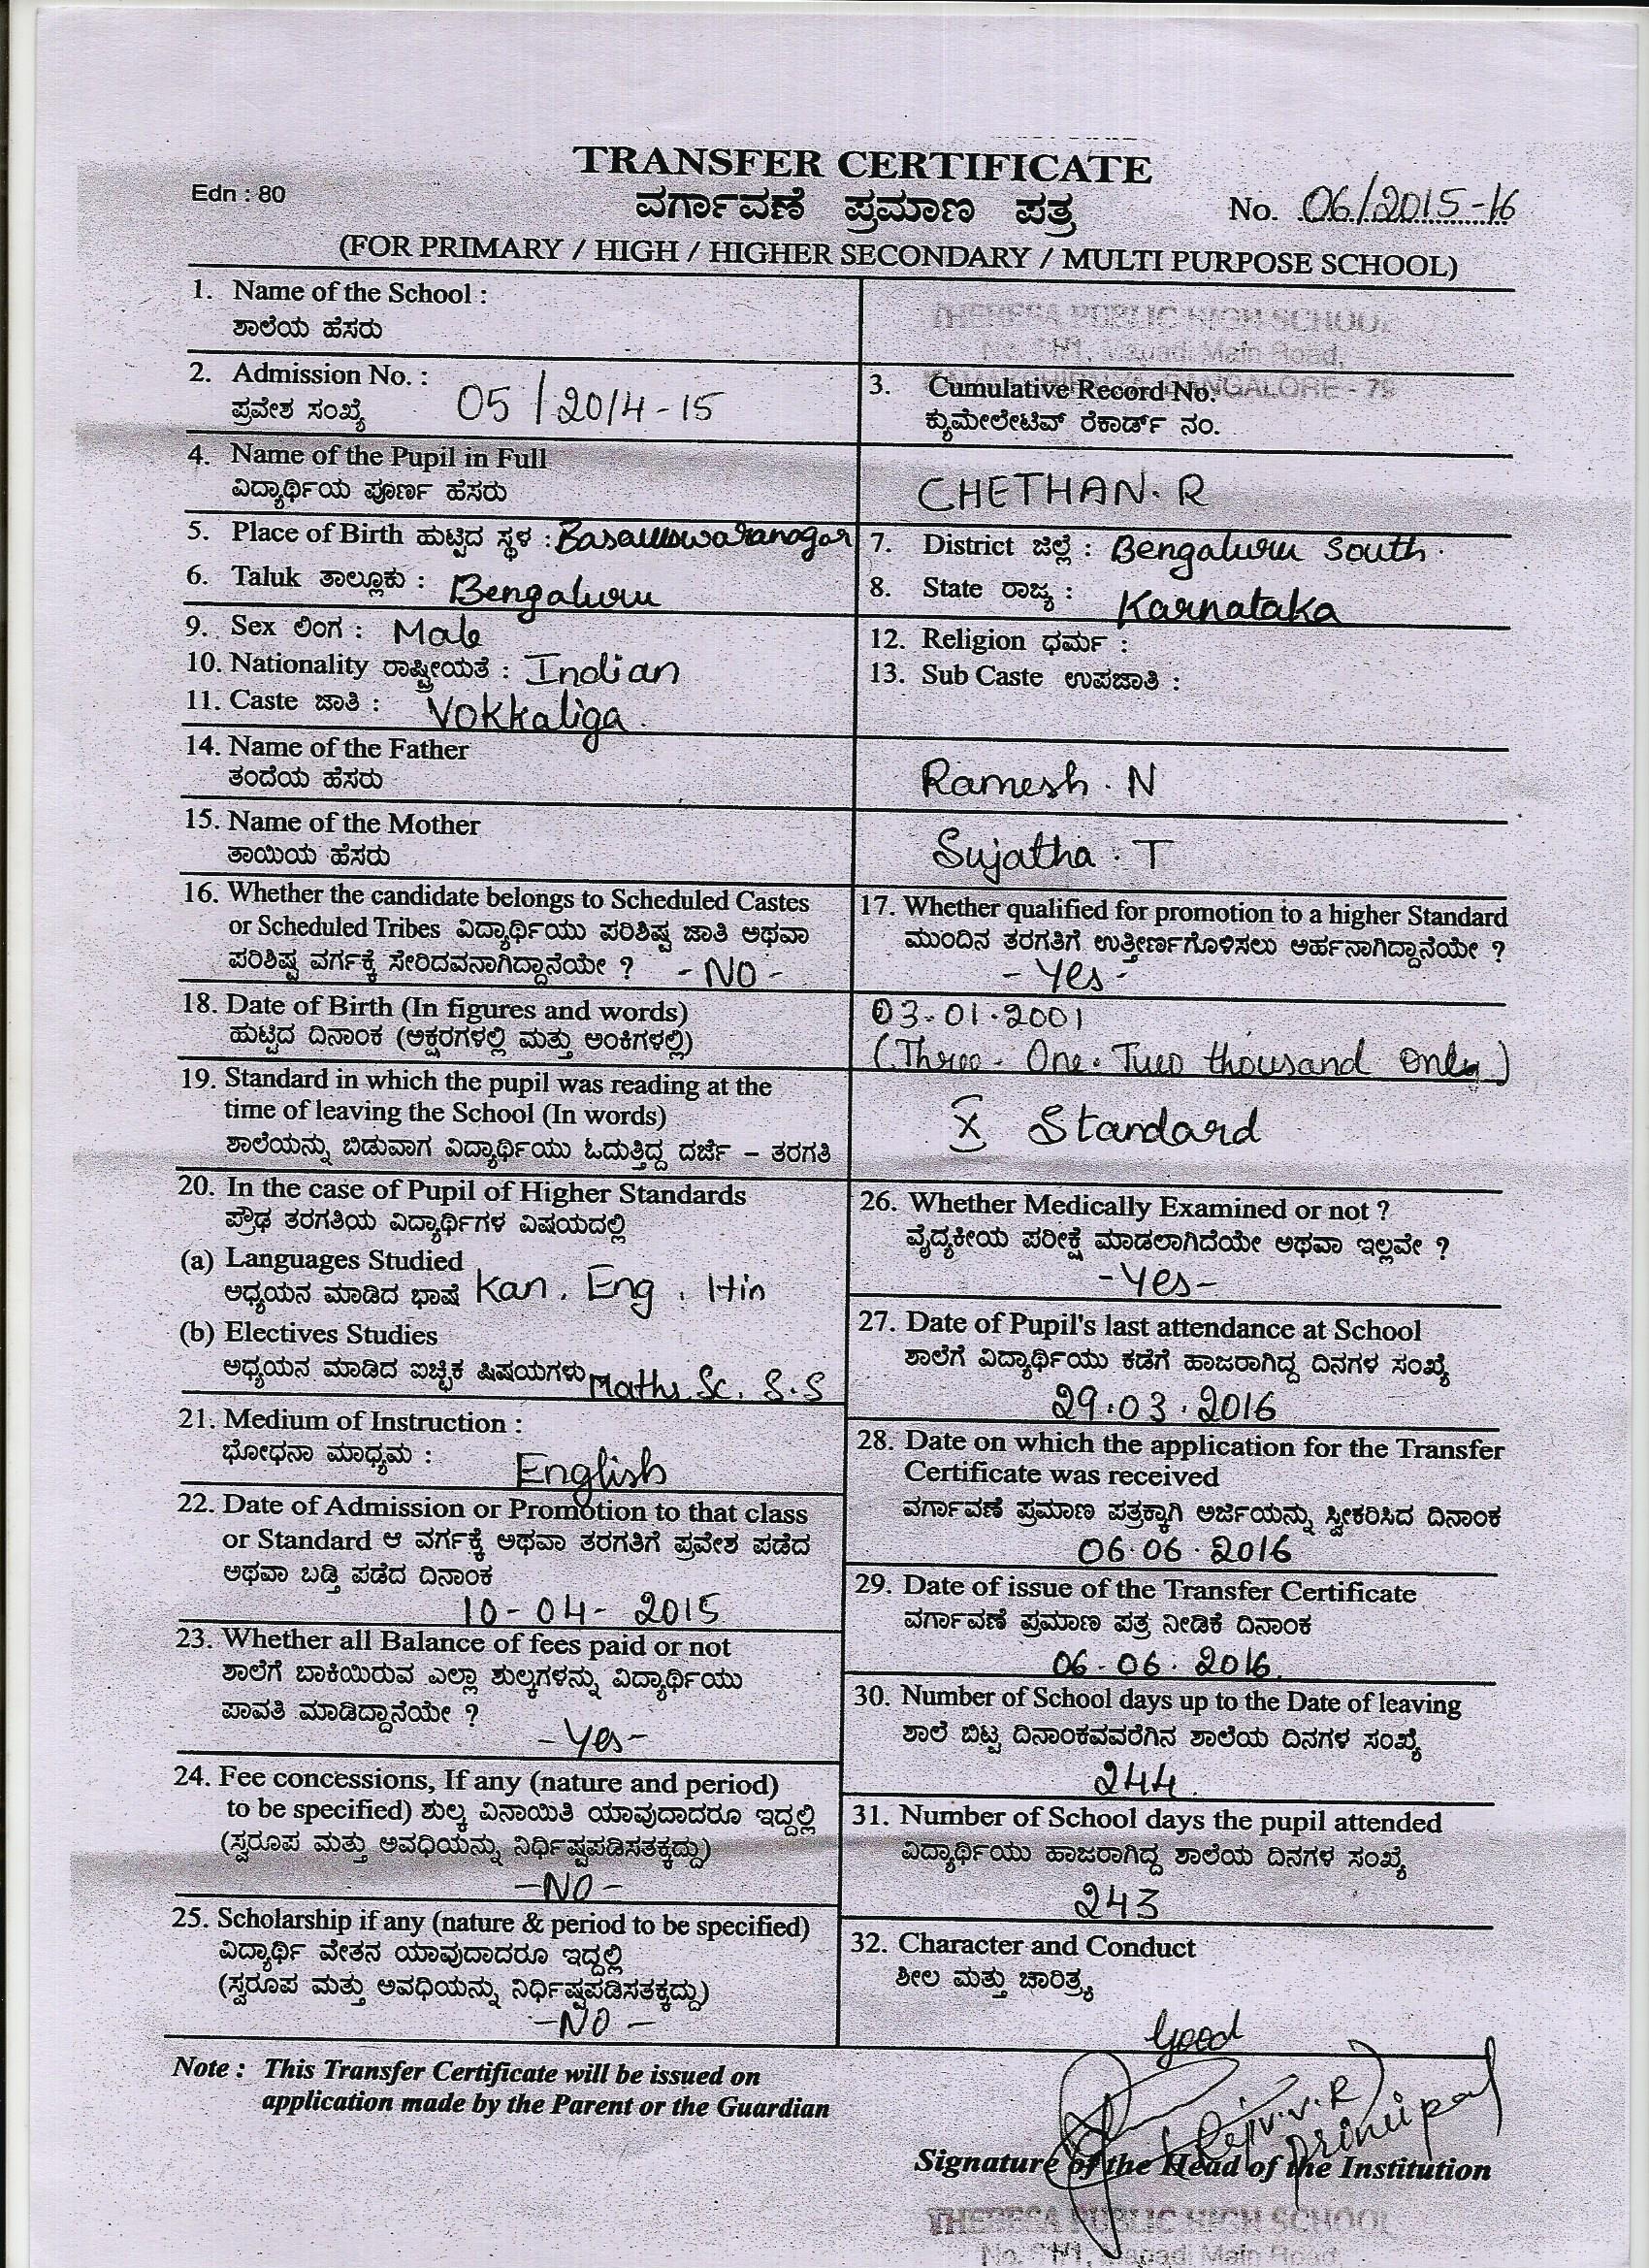 TRANSFER CERTIFICATE
Edn : 80
ವರ್ಗಾವಣೆ ಪ್ರಮಾಣ ಪತ್ರ
No. 06/2015-16
(FOR PRIMARY / HIGH / HIGHER SECONDARY / MULTI PURPOSE SCHOOL)
1. Name of the School :
ಶಾಲೆಯ ಹೆಸರು
THERESA PUBLIC HIGH SCHOOL
Main Road,
BANGALORE - 79
2. Admission No. :
ಪ್ರವೇಶ ಸಂಖ್ಯೆ 05/2014-15
3. Cumulative Record No.
ಕ್ಯುಮೇಲೇಟಿವ್ ರೆಕಾರ್ಡ್ ನಂ.
4. Name of the Pupil in Full
ವಿದ್ಯಾರ್ಥಿಯ ಪೂರ್ಣ ಹೆಸರು
CHETHAN. R
5. Place of Birth ಹುಟ್ಟಿದ ಸ್ಥಳ :
6. Taluk ತಾಲ್ಲೂಕು : Bengaluru
7. District ಜಿಲ್ಲೆ : Bengaluru South.
8. State ರಾಜ್ಯ : Karnataka
9. Sex ಲಿಂಗ : Male
10. Nationality ರಾಷ್ಟ್ರೀಯತೆ : Indian
11. Caste ಜಾತಿ : Vokkaliga.
12. Religion ಧರ್ಮ :
13. Sub Caste ಉಪಜಾತಿ :
14. Name of the Father
ತಂದೆಯ ಹೆಸರು
Ramesh. N
15. Name of the Mother
ತಾಯಿಯ ಹೆಸರು
Sujatha. T
16. Whether the candidate belongs to Scheduled Castes
or Scheduled Tribes ವಿದ್ಯಾರ್ಥಿಯು ಪರಿಶಿಷ್ಟ ಜಾತಿ ಅಥವಾ
ಪರಿಶಿಷ್ಟ ವರ್ಗಕ್ಕೆ ಸೇರಿದವನಾಗಿದ್ದಾನೆಯೇ ? - NO -
17. Whether qualified for promotion to a higher Standard
ಮುಂದಿನ ತರಗತಿಗೆ ಉತ್ತೀರ್ಣಗೊಳಿಸಲು ಅರ್ಹನಾಗಿದ್ದಾನೆಯೇ ?
- Yes -
18. Date of Birth (In figures and words)
ಹುಟ್ಟಿದ ದಿನಾಂಕ (ಅಕ್ಷರಗಳಲ್ಲಿ ಮತ್ತು ಅಂಕಿಗಳಲ್ಲಿ)
03-01-2001
(Three - One - Two thousand only)
19. Standard in which the pupil was reading at the
time of leaving the School (In words)
ಶಾಲೆಯನ್ನು ಬಿಡುವಾಗ ವಿದ್ಯಾರ್ಥಿಯು ಓದುತ್ತಿದ್ದ ದರ್ಜೆ – ತರಗತಿ
X Standard
20. In the case of Pupil of Higher Standards
ಪ್ರೌಢ ತರಗತಿಯ ವಿದ್ಯಾರ್ಥಿಗಳ ವಿಷಯದಲ್ಲಿ
(a) Languages Studied
ಅಧ್ಯಯನ ಮಾಡಿದ ಭಾಷೆ Kan, Eng, Hin
(b) Electives Studies
ಅಧ್ಯಯನ ಮಾಡಿದ ಐಚ್ಛಿಕ ಷಿಷಯಗಳು Maths, Sc. S.S
21. Medium of Instruction :
ಭೋಧನಾ ಮಾಧ್ಯಮ :
English
22. Date of Admission or Promotion to that class
or Standard ಆ ವರ್ಗಕ್ಕೆ ಅಥವಾ ತರಗತಿಗೆ ಪ್ರವೇಶ ಪಡೆದ
ಅಥವಾ ಬಡ್ತಿ ಪಡೆದ ದಿನಾಂಕ
10-04-2015
23. Whether all Balance of fees paid or not
ಶಾಲೆಗೆ ಬಾಕಿಯಿರುವ ಎಲ್ಲಾ ಶುಲ್ಕಗಳನ್ನು ವಿದ್ಯಾರ್ಥಿಯು
ಪಾವತಿ ಮಾಡಿದ್ದಾನೆಯೇ ?
- Yes -
24. Fee concessions, If any (nature and period)
to be specified) ಶುಲ್ಕ ವಿನಾಯಿತಿ ಯಾವುದಾದರೂ ಇದ್ದಲ್ಲಿ
(ಸ್ವರೂಪ ಮತ್ತು ಅವಧಿಯನ್ನು ನಿರ್ಧಿಷ್ಟಪಡಿಸತಕ್ಕದ್ದು)
- NO -
25. Scholarship if any (nature & period to be specified)
ವಿದ್ಯಾರ್ಥಿ ವೇತನ ಯಾವುದಾದರೂ ಇದ್ದಲ್ಲಿ
(ಸ್ವರೂಪ ಮತ್ತು ಅವಧಿಯನ್ನು ನಿರ್ಧಿಷ್ಟಪಡಿಸತಕ್ಕದ್ದು)
- NO -
26. Whether Medically Examined or not ?
ವೈದ್ಯಕೀಯ ಪರೀಕ್ಷೆ ಮಾಡಲಾಗಿದೆಯೇ ಅಥವಾ ಇಲ್ಲವೇ ?
- Yes -
27. Date of Pupil's last attendance at School
ಶಾಲೆಗೆ ವಿದ್ಯಾರ್ಥಿಯು ಕಡೆಗೆ ಹಾಜರಾಗಿದ್ದ ದಿನಗಳ ಸಂಖ್ಯೆ
29.03.2016
28. Date on which the application for the Transfer
Certificate was received
ವರ್ಗಾವಣೆ ಪ್ರಮಾಣ ಪತ್ರಕ್ಕಾಗಿ ಅರ್ಜಿಯನ್ನು ಸ್ವೀಕರಿಸಿದ ದಿನಾಂಕ
06.06.2016
29. Date of issue of the Transfer Certificate
ವರ್ಗಾವಣೆ ಪ್ರಮಾಣ ಪತ್ರ ನೀಡಿಕೆ ದಿನಾಂಕ
06-06.2016.
30. Number of School days up to the Date of leaving
ಶಾಲೆ ಬಿಟ್ಟ ದಿನಾಂಕವವರೆಗಿನ ಶಾಲೆಯ ದಿನಗಳ ಸಂಖ್ಯೆ
244
31. Number of School days the pupil attended
ವಿದ್ಯಾರ್ಥಿಯು ಹಾಜರಾಗಿದ್ದ ಶಾಲೆಯ ದಿನಗಳ ಸಂಖ್ಯೆ
243
32. Character and Conduct
ಶೀಲ ಮತ್ತು ಚಾರಿತ್ರ್ಯ
Good
Note : This Transfer Certificate will be issued on
application made by the Parent or the Guardian
Principal
Signature of the Head of the Institution
THERESA PUBLIC HIGH SCHOOL
Main Road,